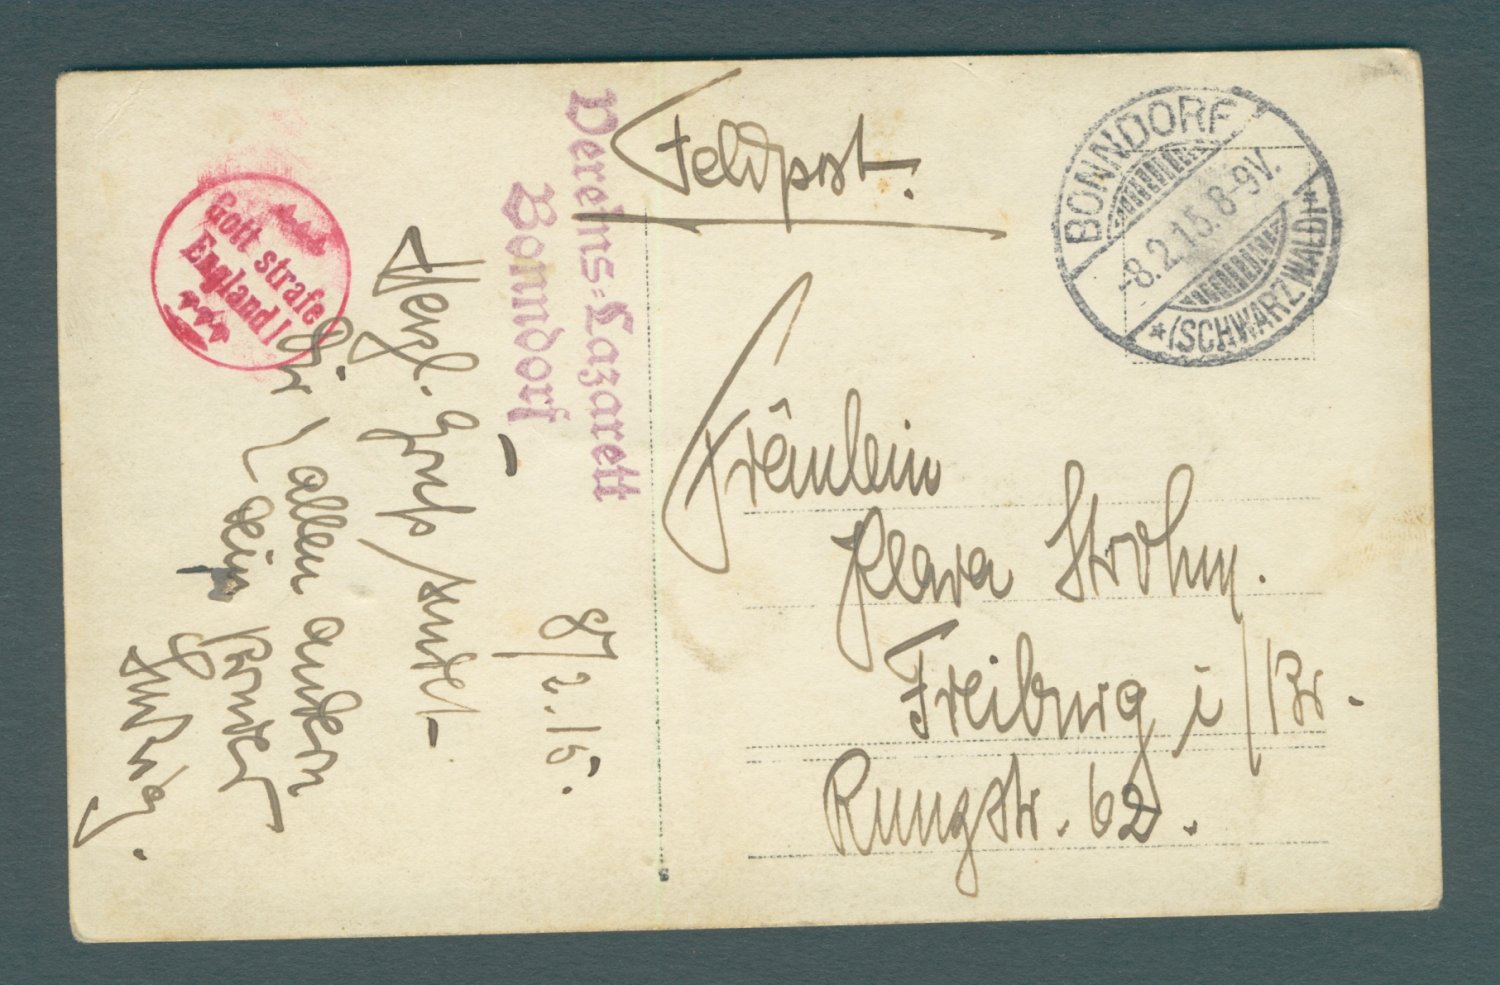 Feldpost.
BONNDORF
-8.2.15.8-9V.
*(SCHWARZWALD)*
Fräulein
Klara Strohm.
Freiburg i/Br.
Rungstr. 62.
Vereins-Lazarett
Bonndorf
Gott strafe
England!
8/2.15.
Herzl. Gruß sendet
Dir / allen andern
Dein